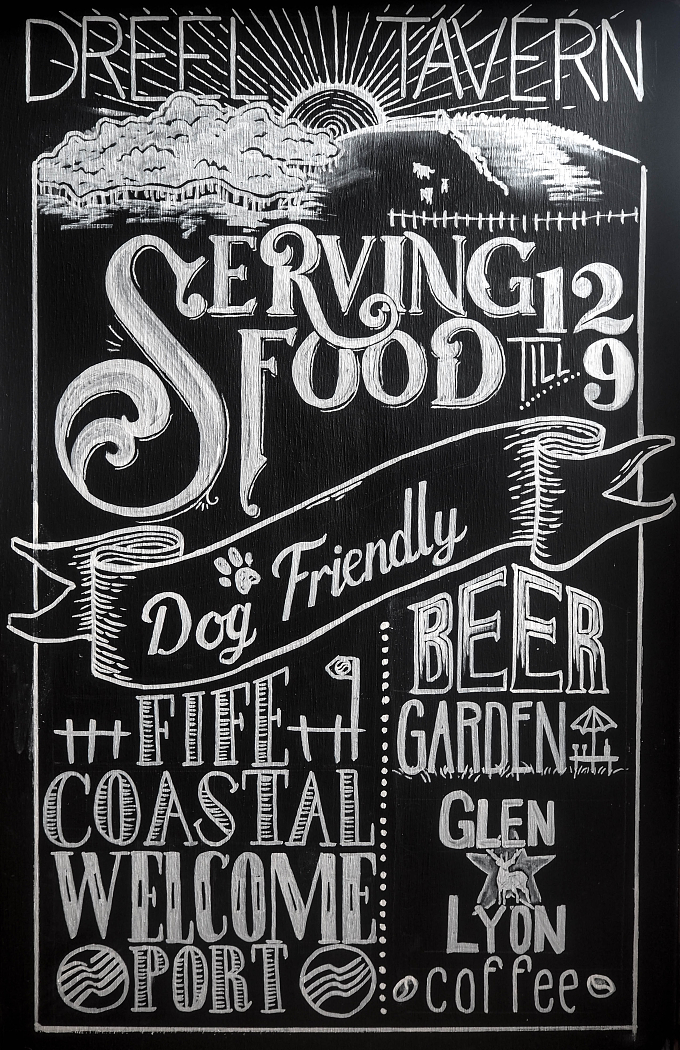 DREEL TAVERN
SERVING 12
FOOD TILL 9
Dog Friendly
FIFE
COASTAL
WELCOME
PORT
BEER
GARDEN
GLEN
LYON
coffee